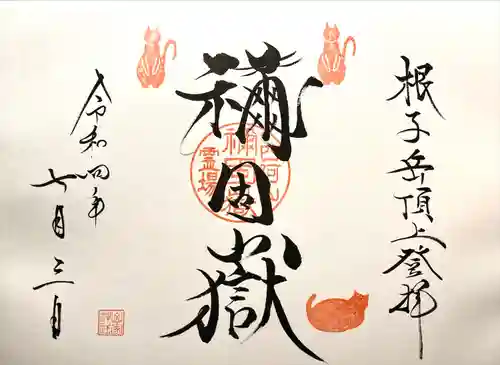 根子岳頂上登拝
禰固嶽
令和四年
七月三日
霊場